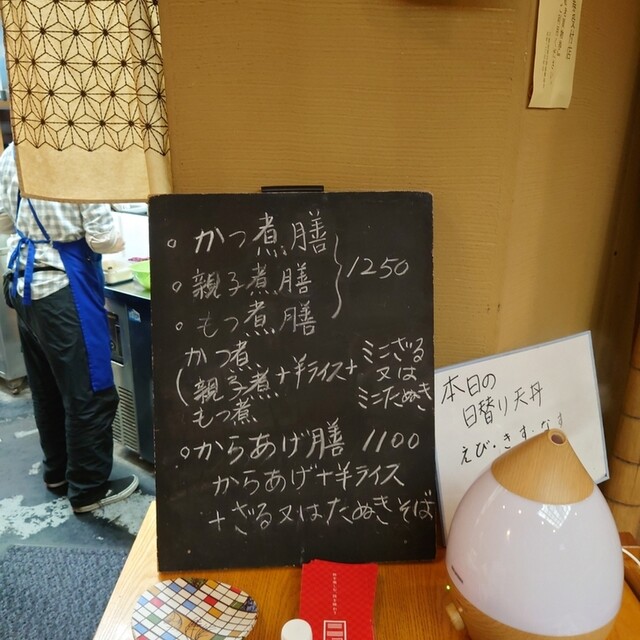 。かつ煮膳
。親子煮膳
。もつ煮膳
1250
かつ煮
親子煮
もつ煮
+半ライス+
ミニざる
又は
ミニたぬき
。からあげ膳 1100
からあげ+半ライス
+ざる又はたぬきそば
本日の
日替り天丼
えび・きす・なす